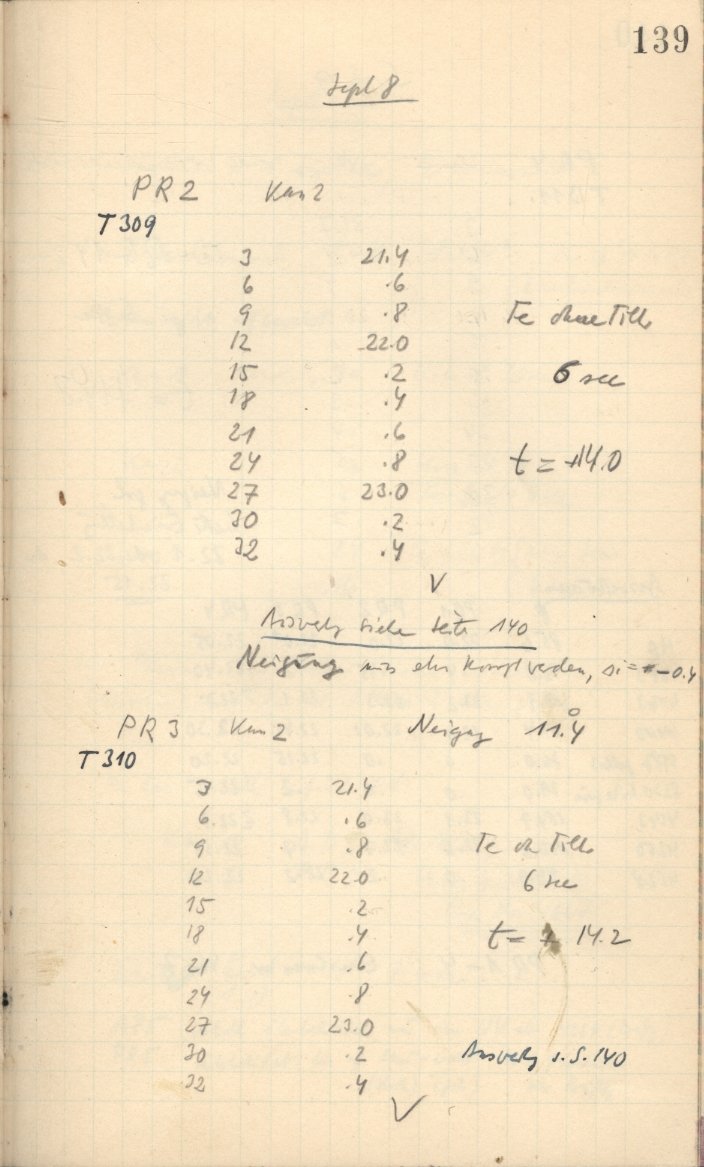 139
Sept 8
PR2 Kam 2
T 309
3 21.4
6 .6
9 .8 Te ohne Tills
12 22.0
15 .2 6 sec
18 .4
21 .6
24 .8 t = +14.0
27 23.0
30 .2
32 .4
V
siehe Seite 140
Neigung werden, = -0.4
PR 3 Kam 2 Neigung 11.4°
T310
3 21.4
6 .6
9 .8 Te oh Tills
12 22.0 6 sec
15 .2
18 .4 t = + 14.2
21 .6
24 .8
27 23.0
30 .2 s. S. 140
32 .4
V